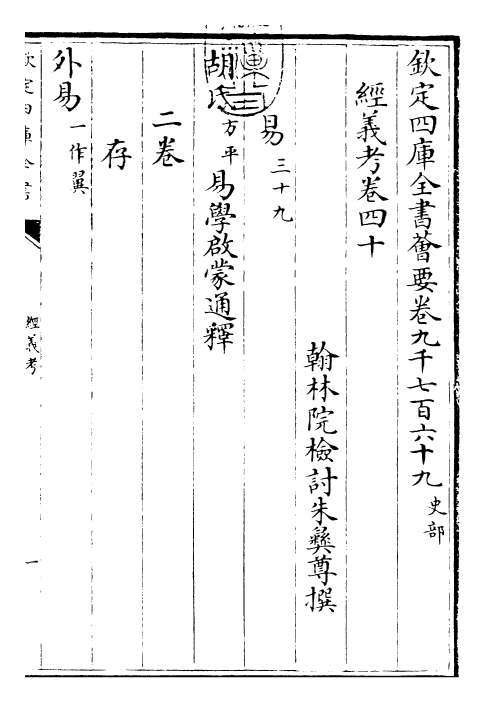 欽定四庫全書薈要卷九千七百六十九史部
經義考卷四十
翰林院檢討朱彝尊撰
易三十九
胡氏方平易學啟蒙通釋
二卷
存
外易一作翼
欽定四庫全書
經義考
一